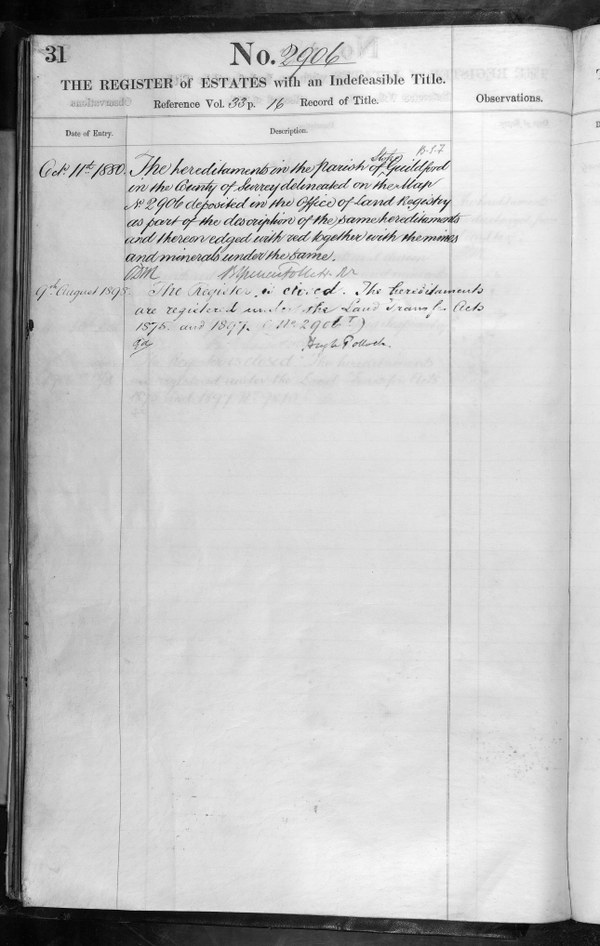 31
No. 2906
THE REGISTER of ESTATES with an Indefeasible Title.
Reference Vol. 33 p. 16 Record of Title.
Observations.
Date of Entry.
Description.
Octr. 11th. 1880. The hereditaments in the Parish of Stoke Guildford
in the County of Surrey delineated on the Map
No 2906 deposited in the Office of Land Registry
as part of the description of the same hereditaments
and thereon edged with red together with the mines
and minerals under the same.
9th August 1898. The Register is closed. The hereditaments
are registered under the Land Transfer Acts
1875 and 1897. (No 2906)
Hugh Pollock.